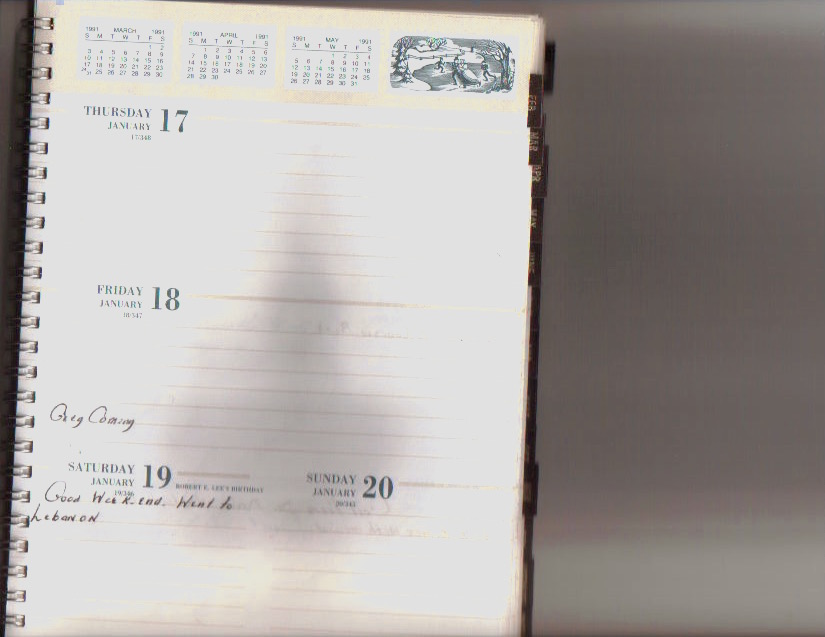 1991 MARCH 1991
S M T W T F S
1 2
3 4 5 6 7 8 9
10 11 12 13 14 15 16
17 18 19 20 21 22 23
24/31 25 26 27 28 29 30
1991 APRIL 1991
S M T W T F S
1 2 3 4 5 6
7 8 9 10 11 12 13
14 15 16 17 18 19 20
21 22 23 24 25 26 27
28 29 30
1991 MAY 1991
S M T W T F S
1 2 3 4
5 6 7 8 9 10 11
12 13 14 15 16 17 18
19 20 21 22 23 24 25
26 27 28 29 30 31
FEB
MAR
APR
MAY
THURSDAY 17
JANUARY
17/348
FRIDAY 18
JANUARY
18/347
Greg Coming
SATURDAY 19
JANUARY
19/346
ROBERT E. LEE'S BIRTHDAY
Good Week-end. Went to
Lebanon
SUNDAY 20
JANUARY
20/345